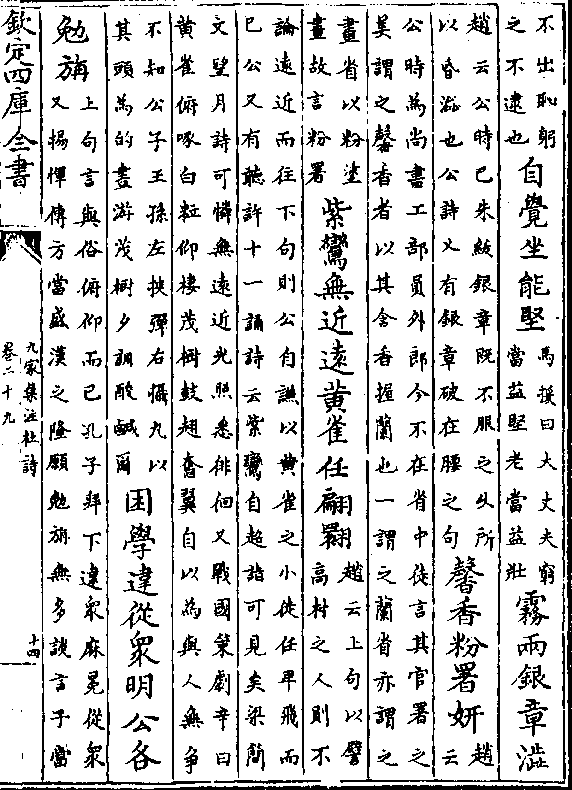 不出恥躬
之不逮也
自覺坐能堅
馬援曰大丈夫窮
當益堅老當益壯
霧雨銀章澁
趙云公時已朱紱銀章既不服之久所
以昏澁也公詩又有銀章破在腰之句
馨香粉署妍
趙
云
公時為尚書工部員外郎今不在省中徒言其官署之
美謂之馨香者以其含香握蘭也一謂之蘭省亦謂之
畫省以粉塗
畫故言粉署
紫鸞無近遠黄雀任翩翾
趙云上句以譬
高材之人則不
論遠近而往下句則公自謙以黄雀之小徒任卑飛而
已公又有聽許十一誦詩云紫鸞自超詣可見矣梁簡
文望月詩可憐無遠近光照悉徘徊又戰國策劇辛曰
黄雀俯啄白粒仰棲茂樹鼓翅奮翼自以為與人無爭
不知公子王孫左挾彈右攝丸以
其頭為的晝游茂樹夕調酸鹹爾
困學違從衆明公各
勉旃
上句言與俗俯仰而已孔子拜下違衆麻冕從衆
又揚惲傳方當盛漢之隆願勉旃無多談言子當
欽定四庫全書
九家集注杜詩
卷二十九
十四